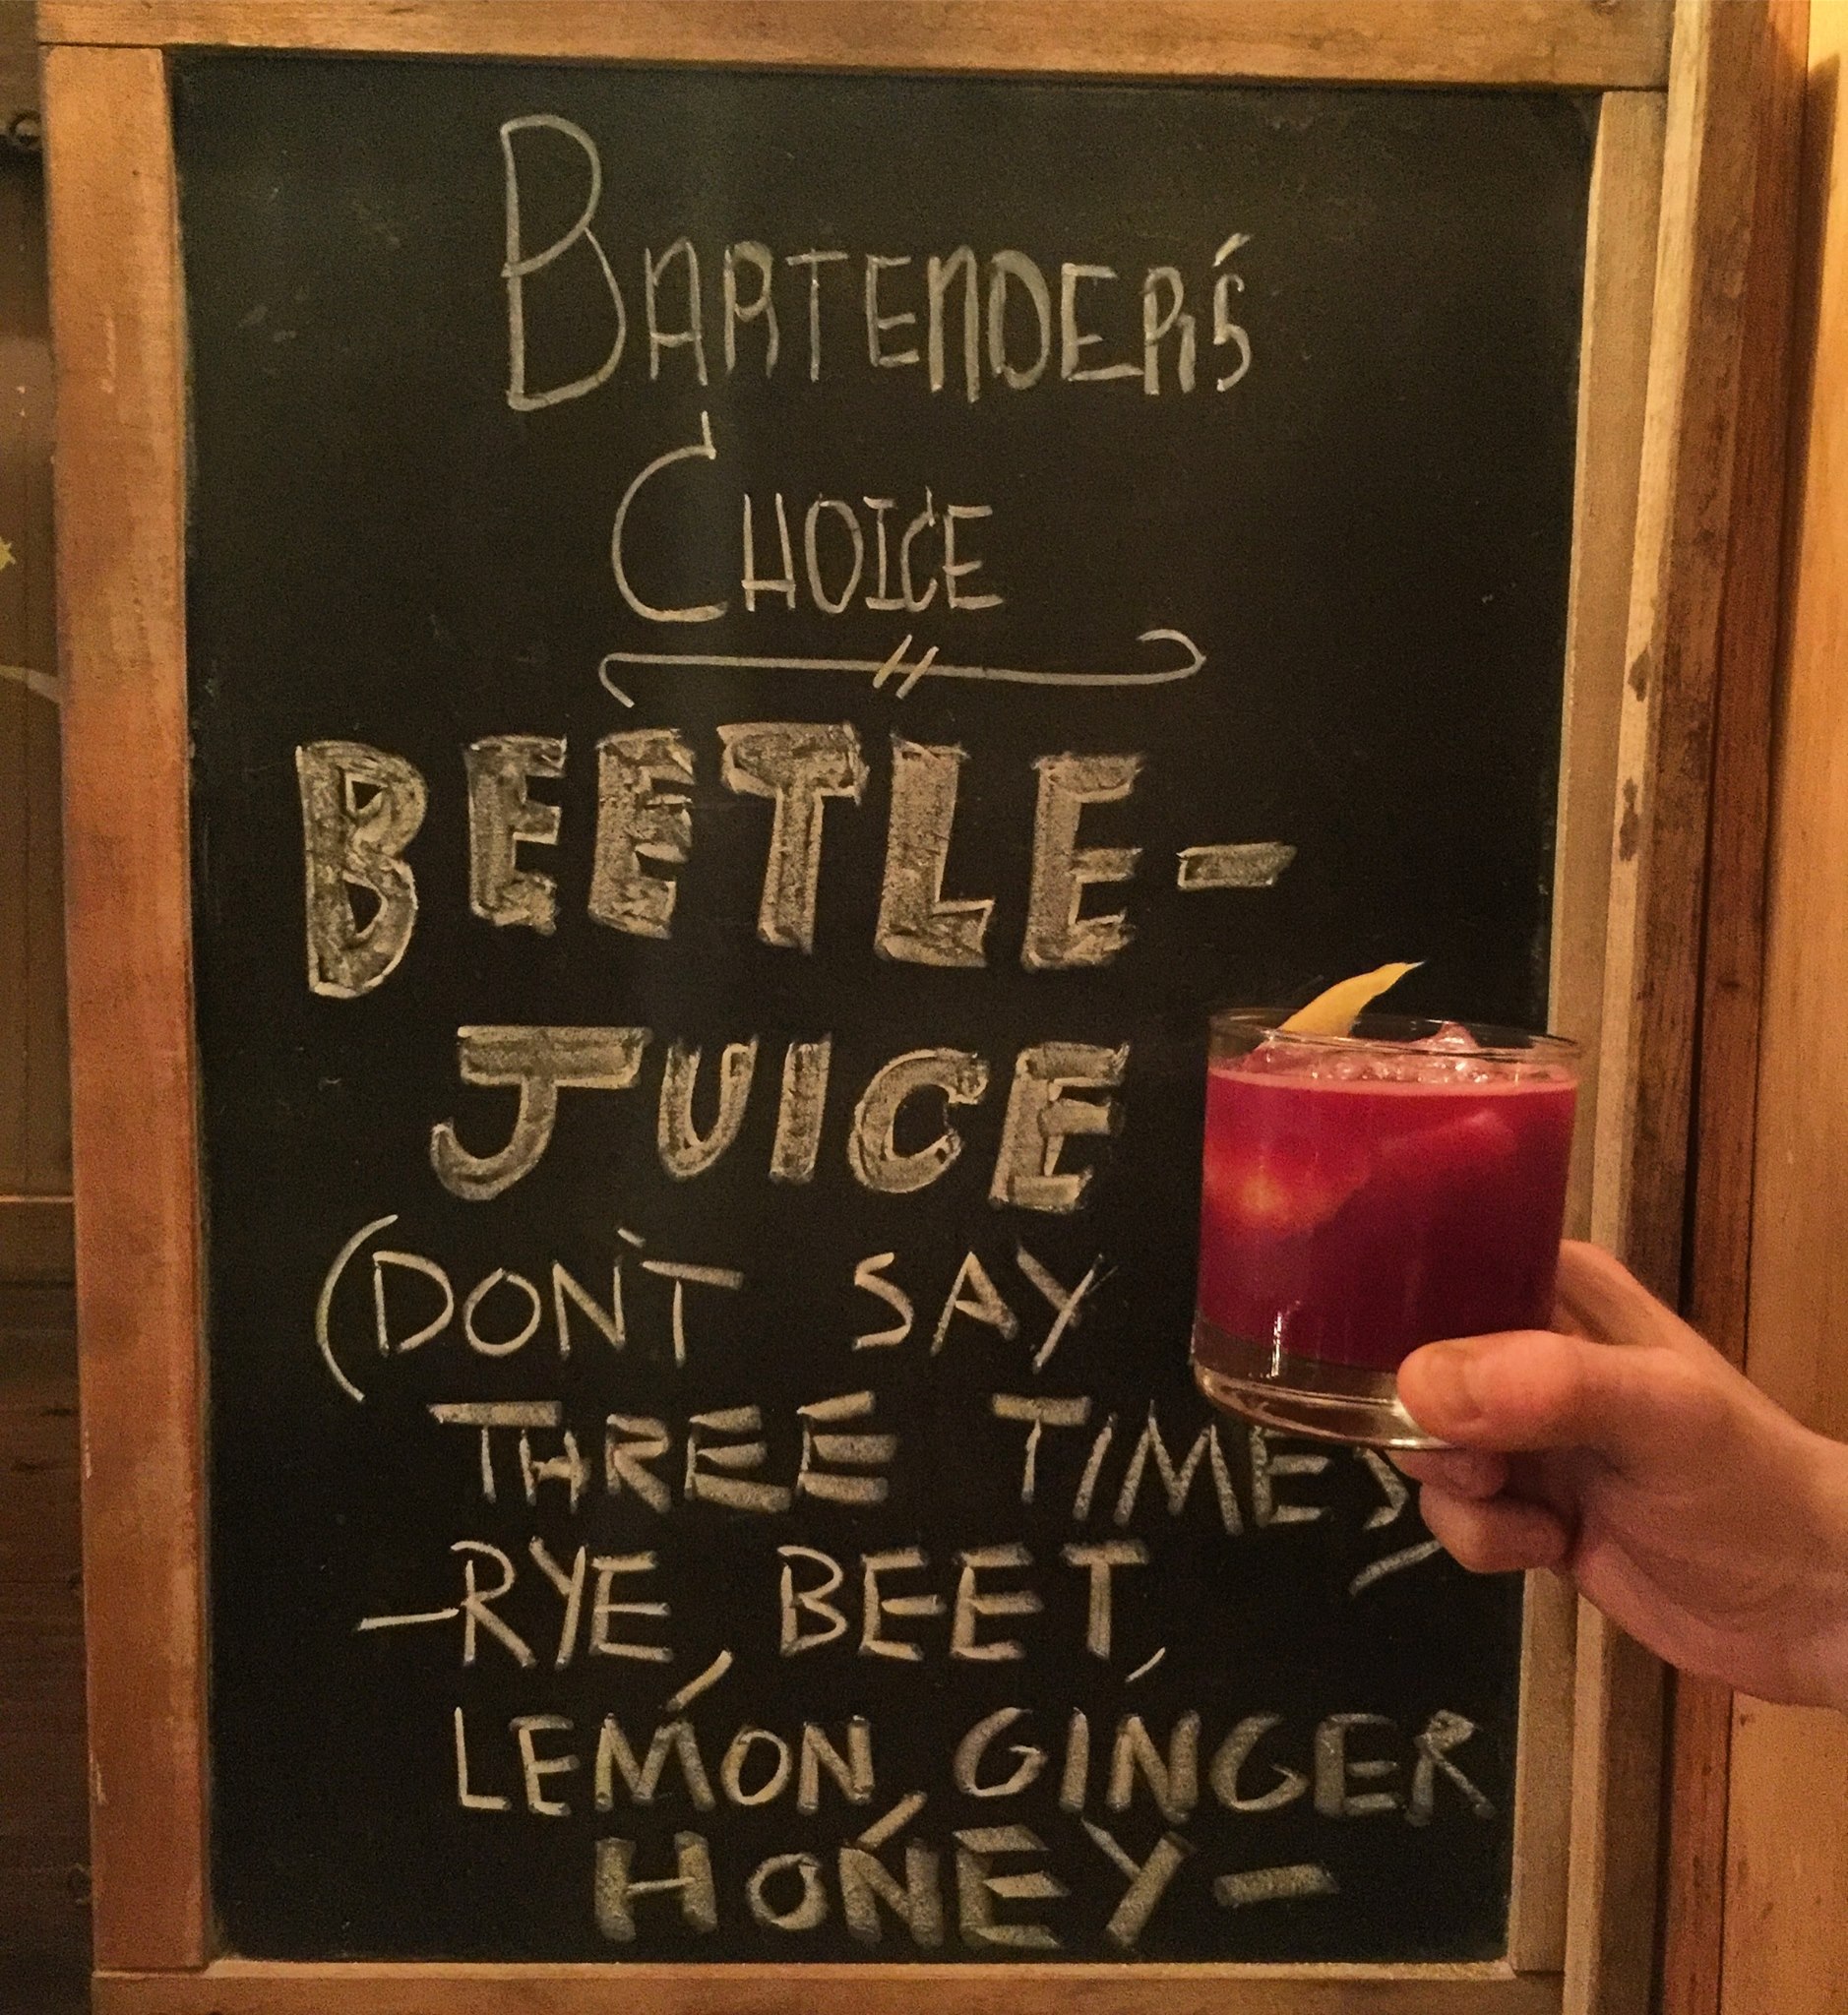 BARTENDER'S
CHOICE
BEETLE-
JUICE
(DON'T SAY
THREE TIMES)
-RYE, BEET,
LEMON, GINGER
HONEY-